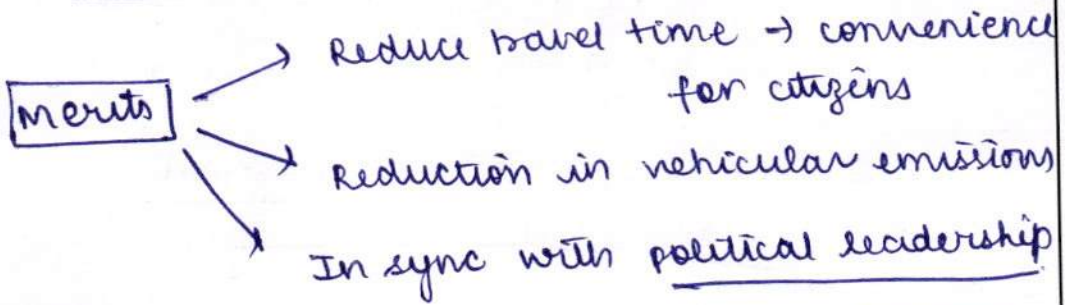 Reduce travel time → convenience
for citizens
Merits
Reduction in vehicular emissions
In sync with political leadership